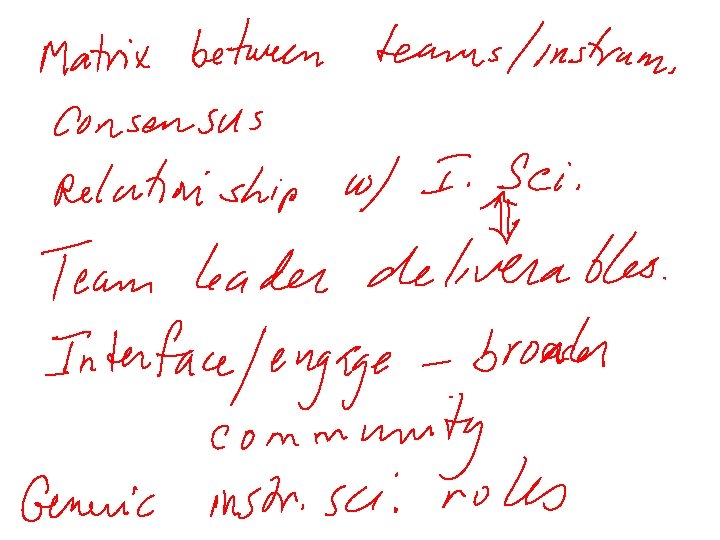 Matrix between teams/instrum.
Consensus
Relationship w/ I. Sci.
Team leader deliverables.
Interface/engage – broader
community
Generic instr. sci. roles